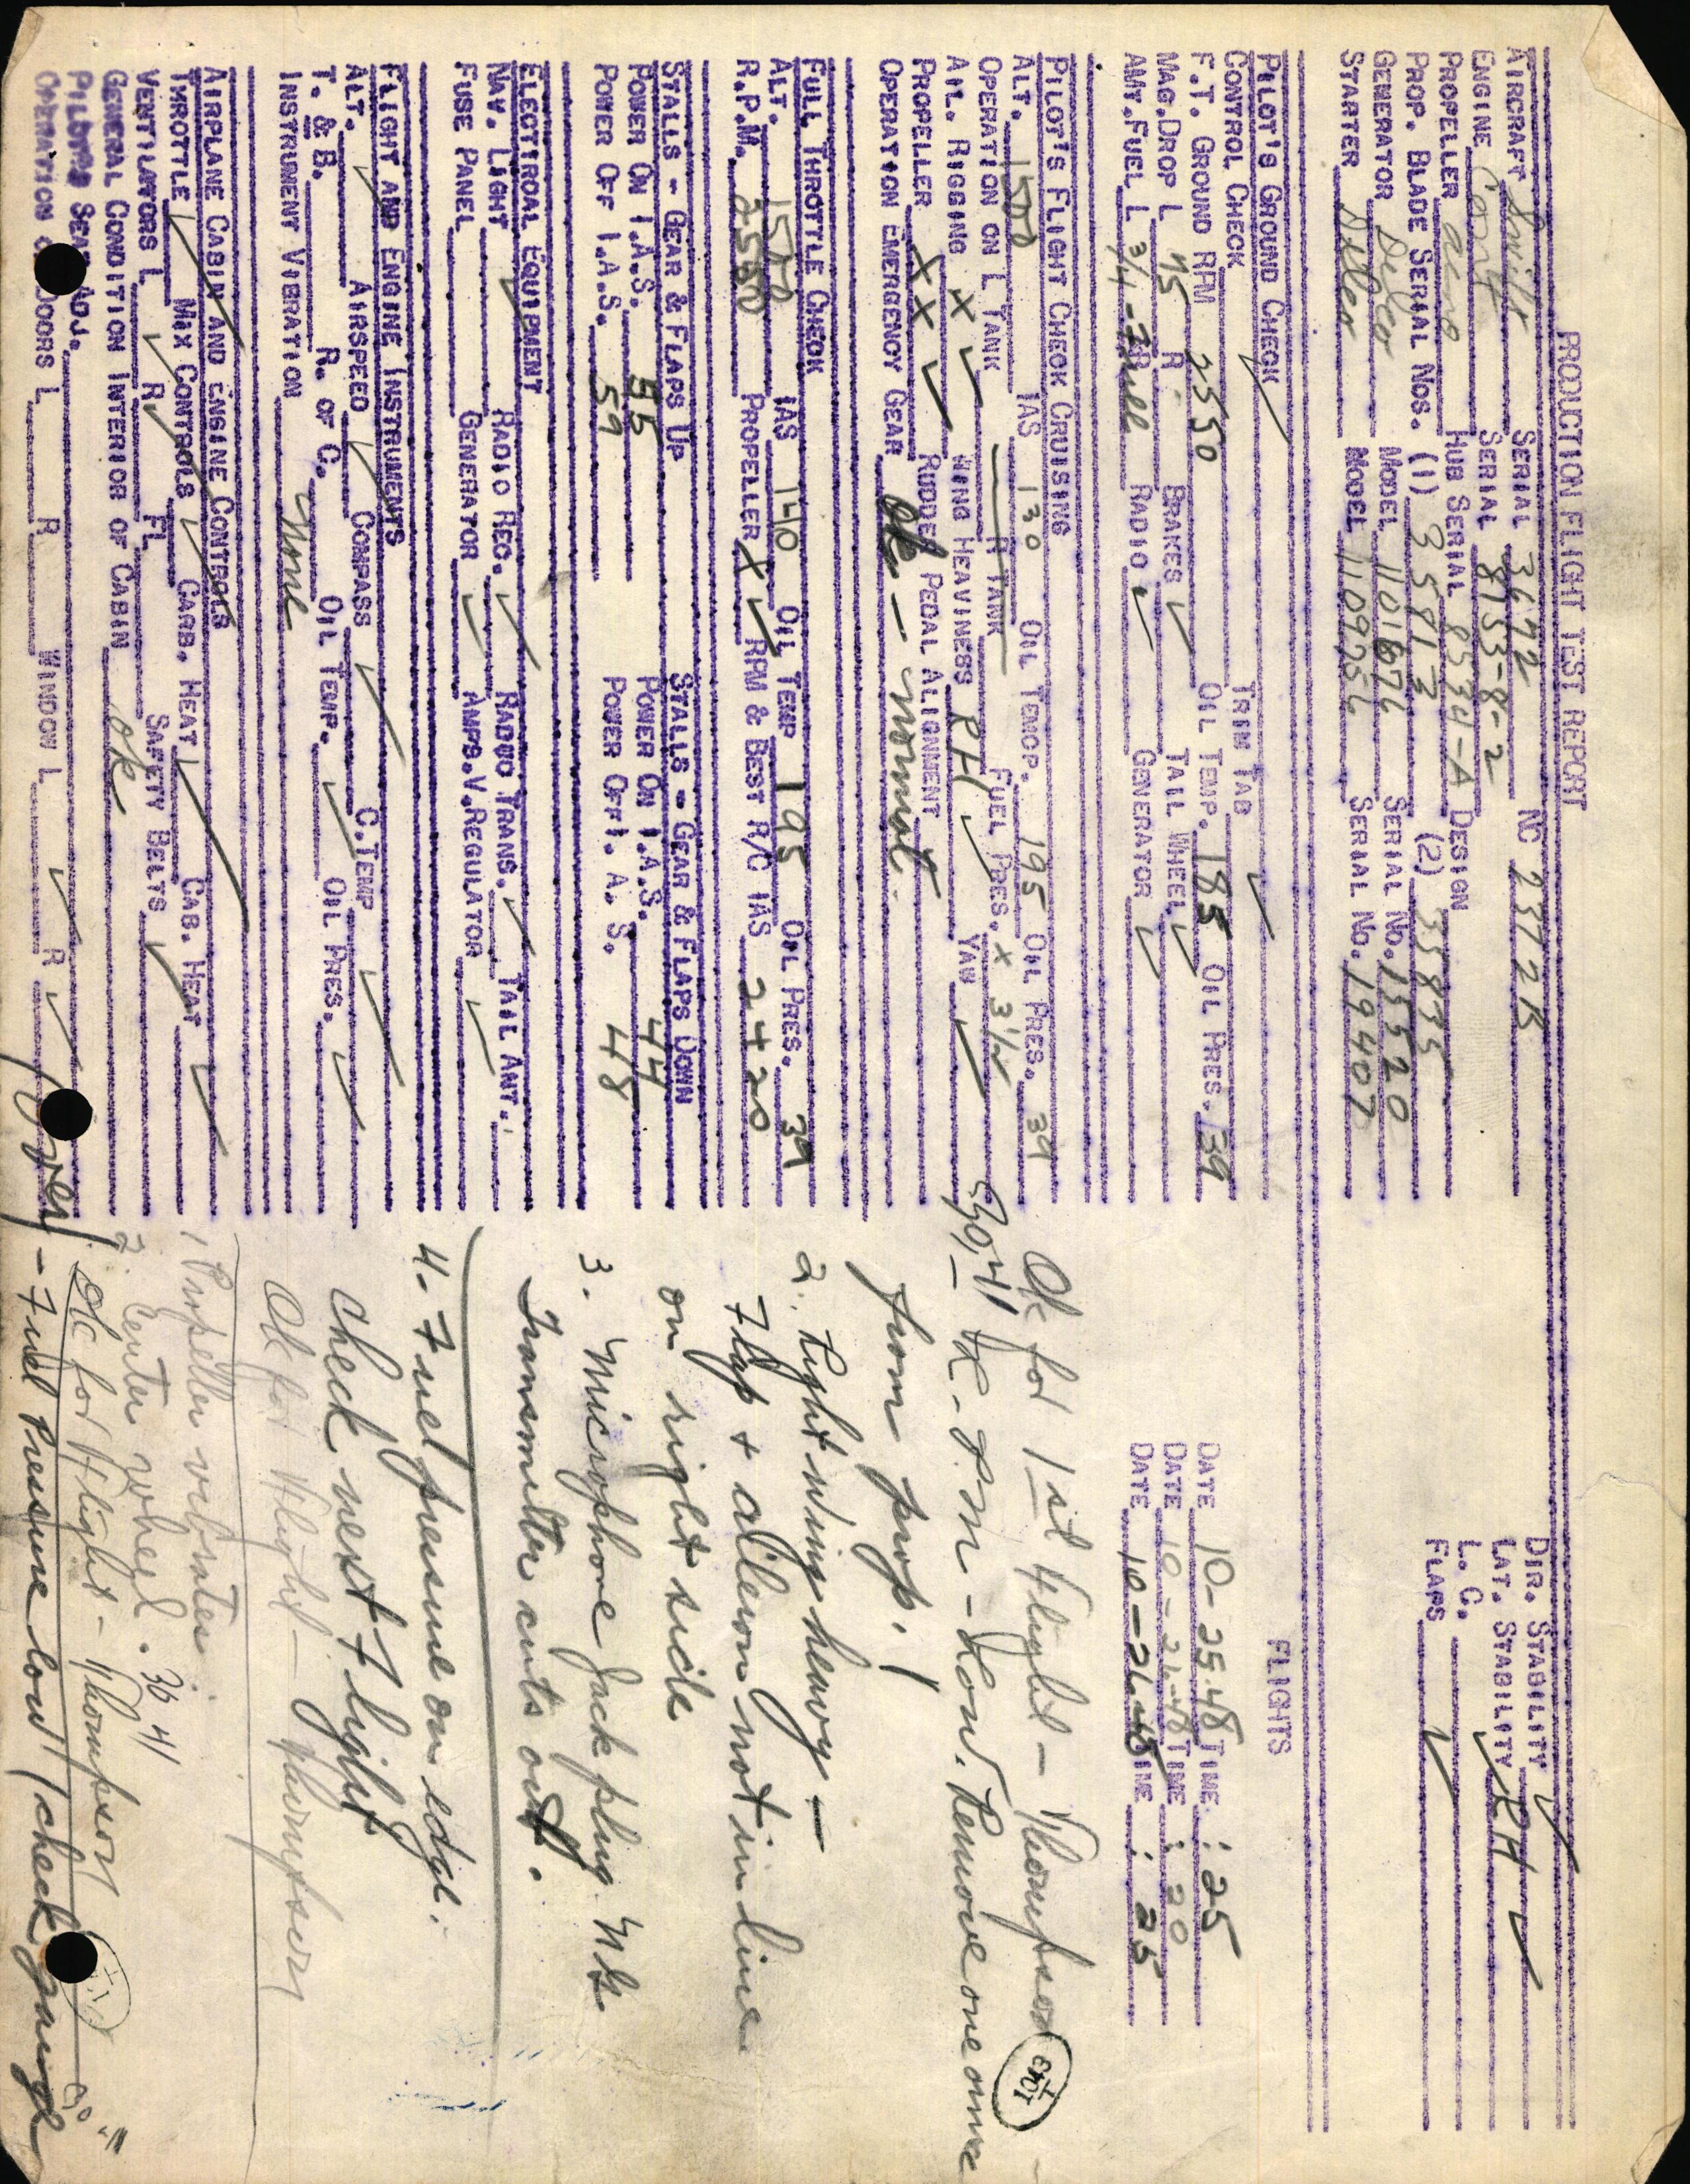 PRODUCTION FLIGHT TEST REPORT
AIRCRAFT Swift SERIAL 3672 NC 2372B DIR. STABILITY ✓
ENGINE Cont SERIAL 8153-8-2 LAT. STABILITY ✓ RH ✓
PROPELLER HUB SERIAL 8534-A DESIGN L. G.
PROP. BLADE SERIAL NOS. (1) 35813 (2) 35835 FLAPS ✓
GENERATOR Delco MODEL 1101876 SERIAL NO. 15520
STARTER Delco MODEL 1109656 SERIAL NO. 19407
FLIGHTS
PILOT'S GROUND CHECK
CONTROL CHECK ✓ TRIM TAB ✓
F.T. GROUND RPM 2550 OIL TEMP. 185 OIL PRES. 39 DATE 10-25-48 TIME :25
MAG. DROP L 75 R BRAKES ✓ TAIL WHEEL ✓ DATE 10-26-48 TIME :20
AMT. FUEL L 3/4 - R Full RADIO ✓ GENERATOR ✓ DATE 10-26-48 TIME :25
PILOT'S FLIGHT CHECK CRUISING
ALT. 1500 IAS 130 OIL TEMP. 195 OIL PRES. 39
OPERATION ON L TANK R TANK FUEL PRES. X 3 1/2 ✓
AIL. RIGGING X ✓ WING HEAVINESS RH ✓ YAW ✓
PROPELLER XX ✓ RUDDER PEDAL ALIGNMENT
OPERATION EMERGENCY GEAR Ok - normal.
FULL THROTTLE CHECK
ALT. 1500 IAS 140 OIL TEMP 195 OIL PRES. 39
R.P.M. 2550 PROPELLER X ✓ RPM & BEST R/C IAS 2420
STALLS - GEAR & FLAPS UP STALLS - GEAR & FLAPS DOWN
POWER ON I.A.S. 55 POWER ON I.A.S. 44
POWER OFF I.A.S. 59 POWER OFF I.A.S. 48
ELECTIROAL EQUIPMENT
NAV. LIGHT ✓ RADIO REC. ✓ RADIO TRANS. ✓ TAIL ANT.
FUSE PANEL GENERATOR ✓ AMPS.V.REGULATOR ✓
FLIGHT AND ENGINE INSTRUMENTS
ALT. ✓ AIRSPEED ✓ COMPASS ✓ C.TEMP ✓
T. & B. R. OF C. OIL TEMP. ✓ OIL PRES. ✓
INSTRUMENT VIBRATION None
AIRPLANE CABIN AND ENGINE CONTROLS
THROTTLE ✓ MIX CONTROLS ✓ CARB. HEAT ✓ CAB. HEAT ✓
VENTILATORS L ✓ R ✓ FL SAFETY BELTS ✓
GENERAL CONDITION INTERIOR OF CABIN Ok
PILOTS SEAT ADJ.
OPERATION OF DOORS L R WINDOW L ✓ R ✓
Ok for 1st flight - Thompson
R.P.M - Low. Remove one ounce
from prop.
2. Right wing heavy -
Flap + aileron not in line
on right side
3. Microphone Jack plug NG
Transmitter cuts out.
4. Fuel pressure on edge.
Check next flight
Ok for flight - Thompson
1 Propeller vibrates.
2. Center wheel.
Ok for flight - Thompson
- Fuel Pressure low (check gauge